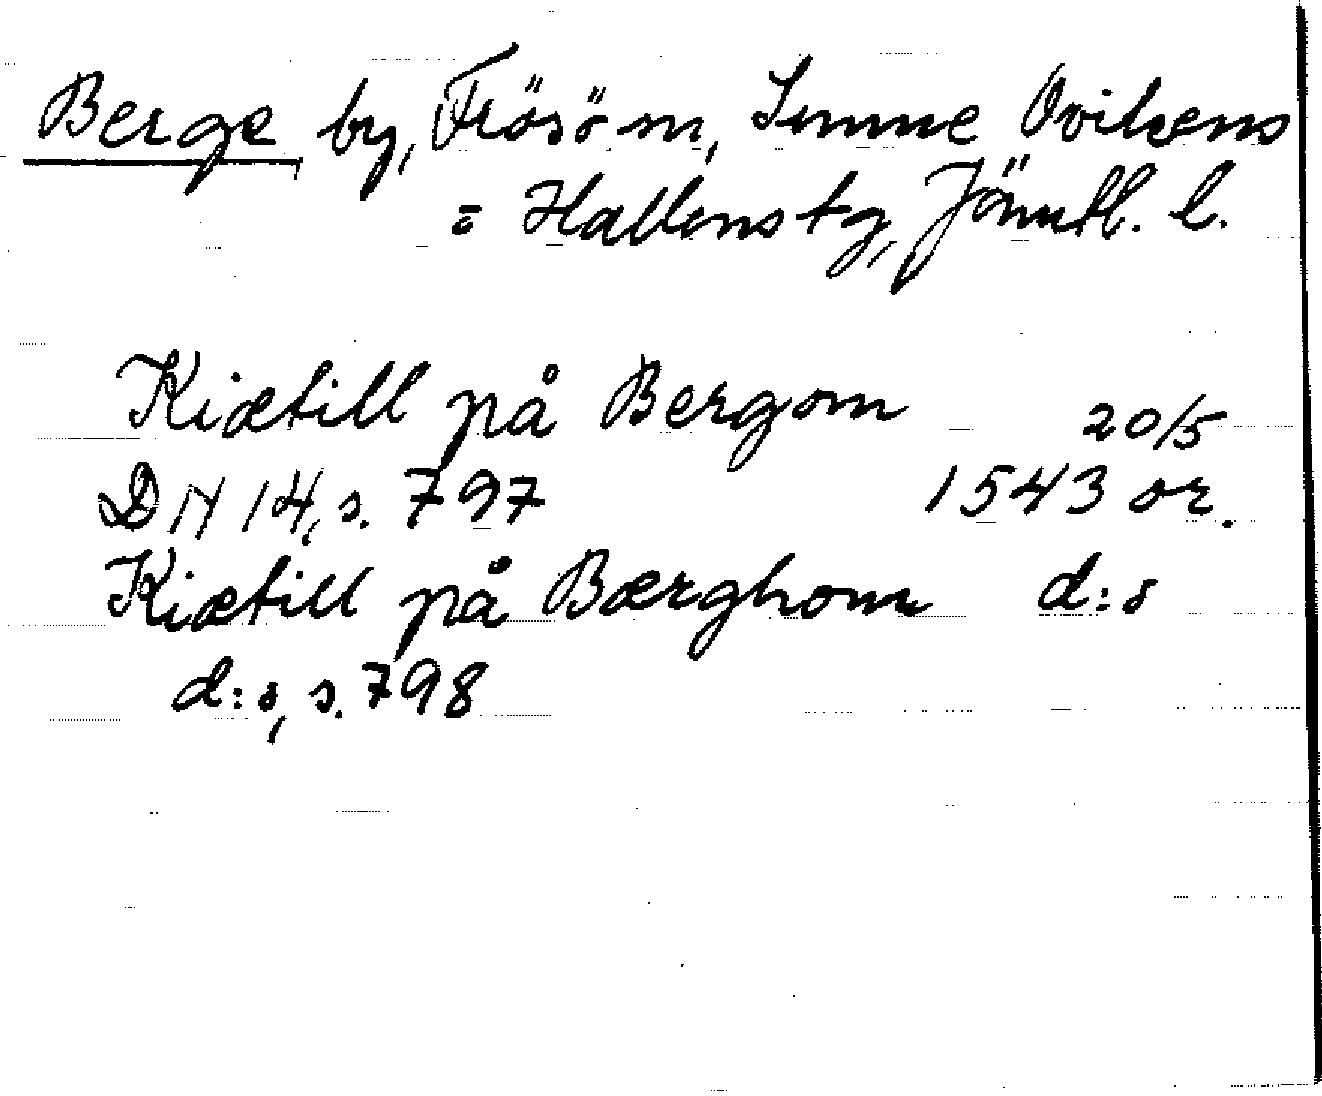 Berge by, Frösö sn, Sunne Ovikens
= Hallens tg, Jämtl. l.
Kiætill på Bergom 20/5
DN 14, s. 797 1543 or.
Kiætill på Bærghom d:o
d:o, s. 798